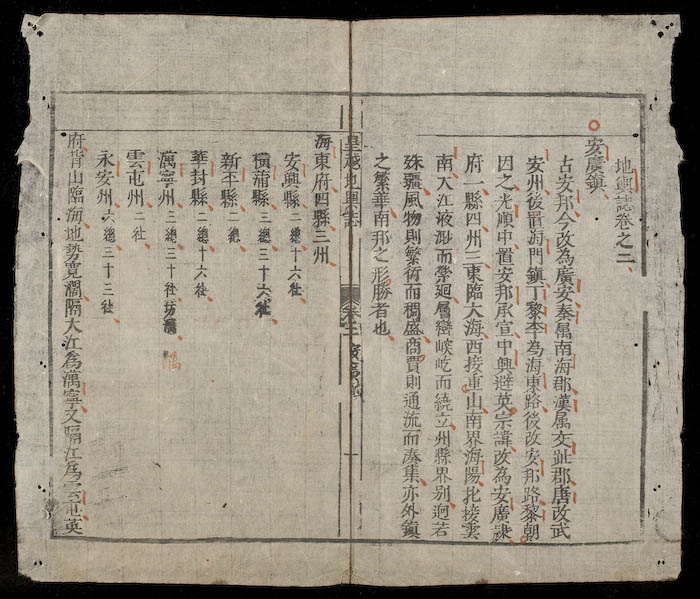 地輿誌卷之二
安廣鎮
古安邦今改為廣安秦属南海郡漢属交趾郡唐改武
安州後置海門鎮丁黎李為海東路後改安邦路黎朝
因之光順中置安邦承宣中興避英宗諱改為安廣隸
府一縣四州三東臨大海西接重山南界海陽北接雲
南大江波渺而縈迴層巒峻屹而繞立州縣界別迥若
殊疆風物則繁術而稠盛商賈則通流而湊集亦外鎮
之繁華南邦之形勝者也
皇越地輿誌
卷之二
海東府四縣三州
安興縣二總十六社
橫蒲縣三總三十六社
新平縣二總
華封縣二總十六社
萬寧州三總三十社坊
雲屯州二社
永安州六總三十三社
府背山臨海地勢寬濶隔大江為萬寧又隔江為雲屯英